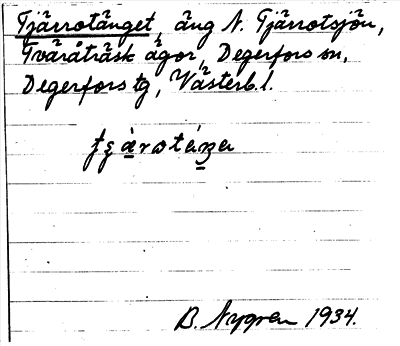 Tjärrotänget, äng N. Tjärrotsjön,
Tväråträsk ägor, Degerfors sn,
Degerfors tg, Västerb. l.
B. Nygren 1934.